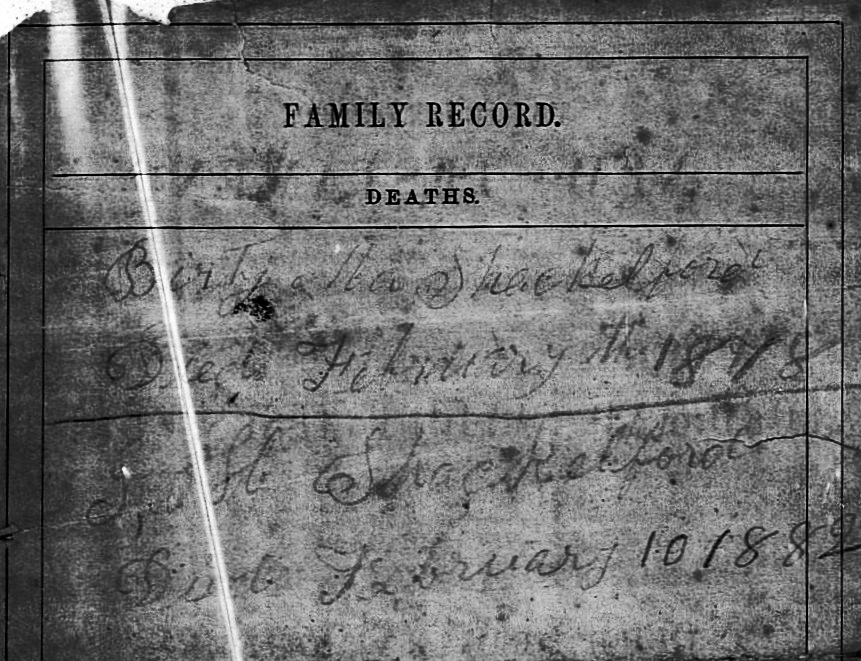 FAMILY RECORD.
DEATHS.
Shackelford
Died February 1878
Shackelford
Died February 10 1882